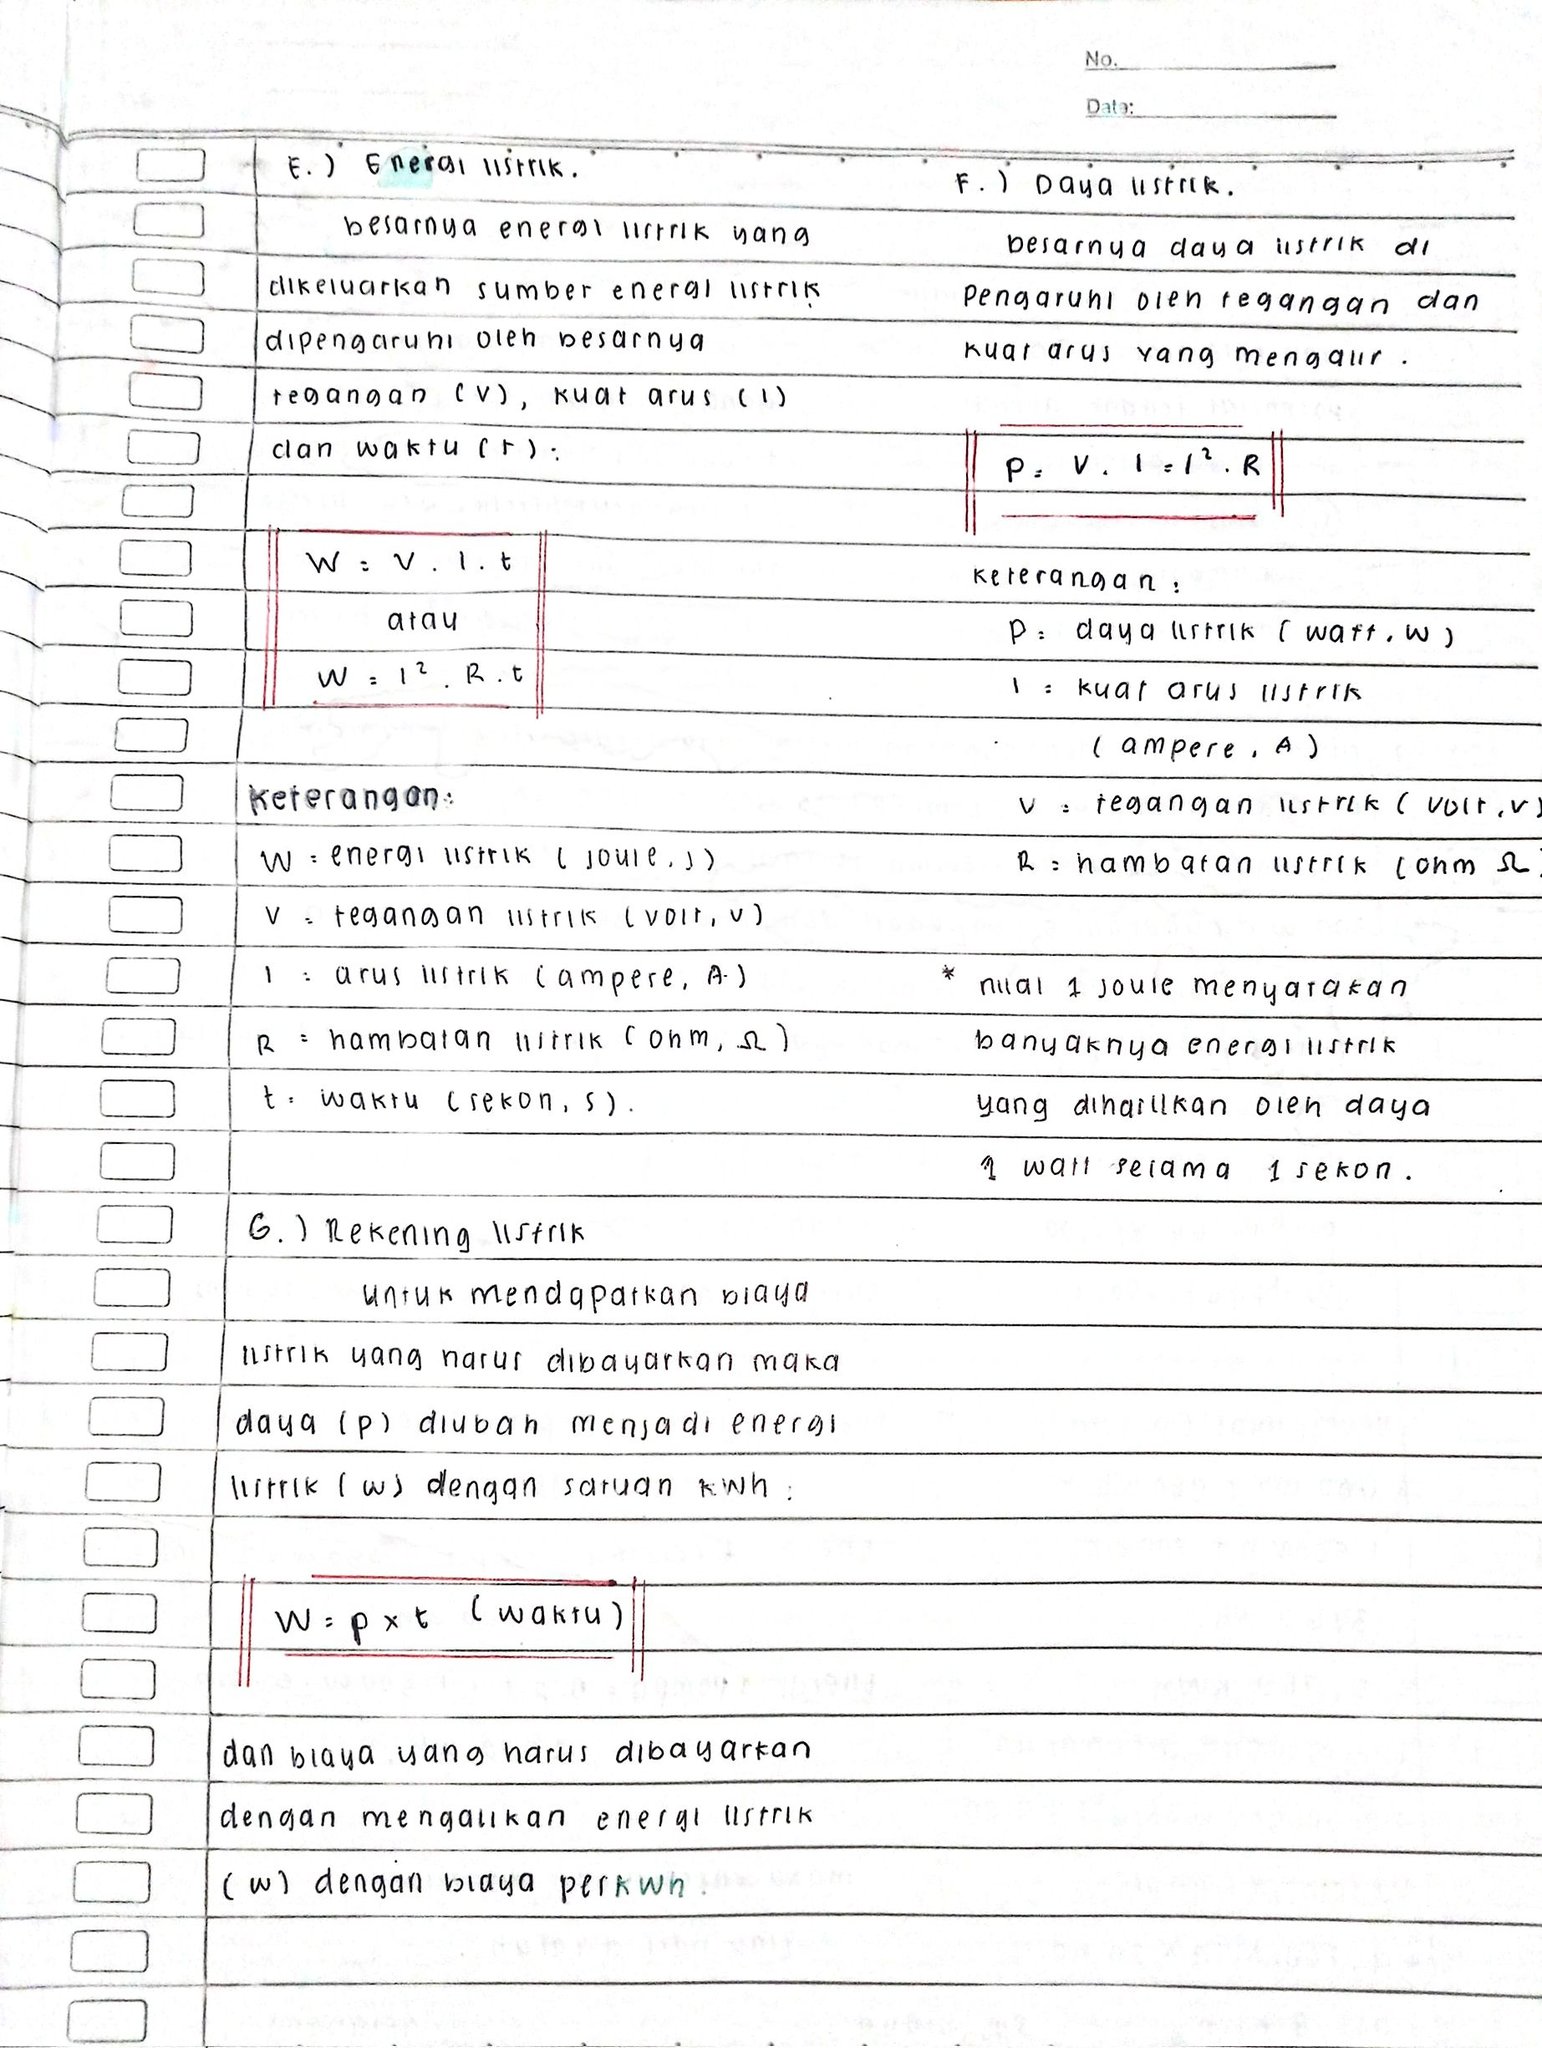 No.
Date:
E.) Energi listrik.
besarnya energi listrik yang
dikeluarkan sumber energi listrik
dipengaruhi oleh besarnya
tegangan (V), kuat arus (I)
dan waktu (t):
W = V . I . t
atau
W = I² . R . t
Keterangan:
W = energi listrik (joule, J)
V = tegangan listrik (volt, V)
I = arus listrik (ampere, A.)
R = hambatan listrik (ohm, Ω)
t = waktu (sekon, s).
F.) Daya listrik.
besarnya daya listrik di
pengaruhi oleh tegangan dan
kuat arus yang mengalir.
P = V . I = I² . R
Keterangan:
P = daya listrik (watt, W)
I = kuat arus listrik
(ampere, A)
V = tegangan listrik (volt, V)
R = hambatan listrik (ohm Ω)
* nilai 1 joule menyatakan
banyaknya energi listrik
yang dihasilkan oleh daya
1 watt selama 1 sekon.
G.) Rekening listrik
untuk mendapatkan biaya
listrik yang harus dibayarkan maka
daya (P) diubah menjadi energi
listrik (W) dengan satuan kWh:
W = P x t (waktu)
dan biaya yang harus dibayarkan
dengan mengalikan energi listrik
(W) dengan biaya perkWh.